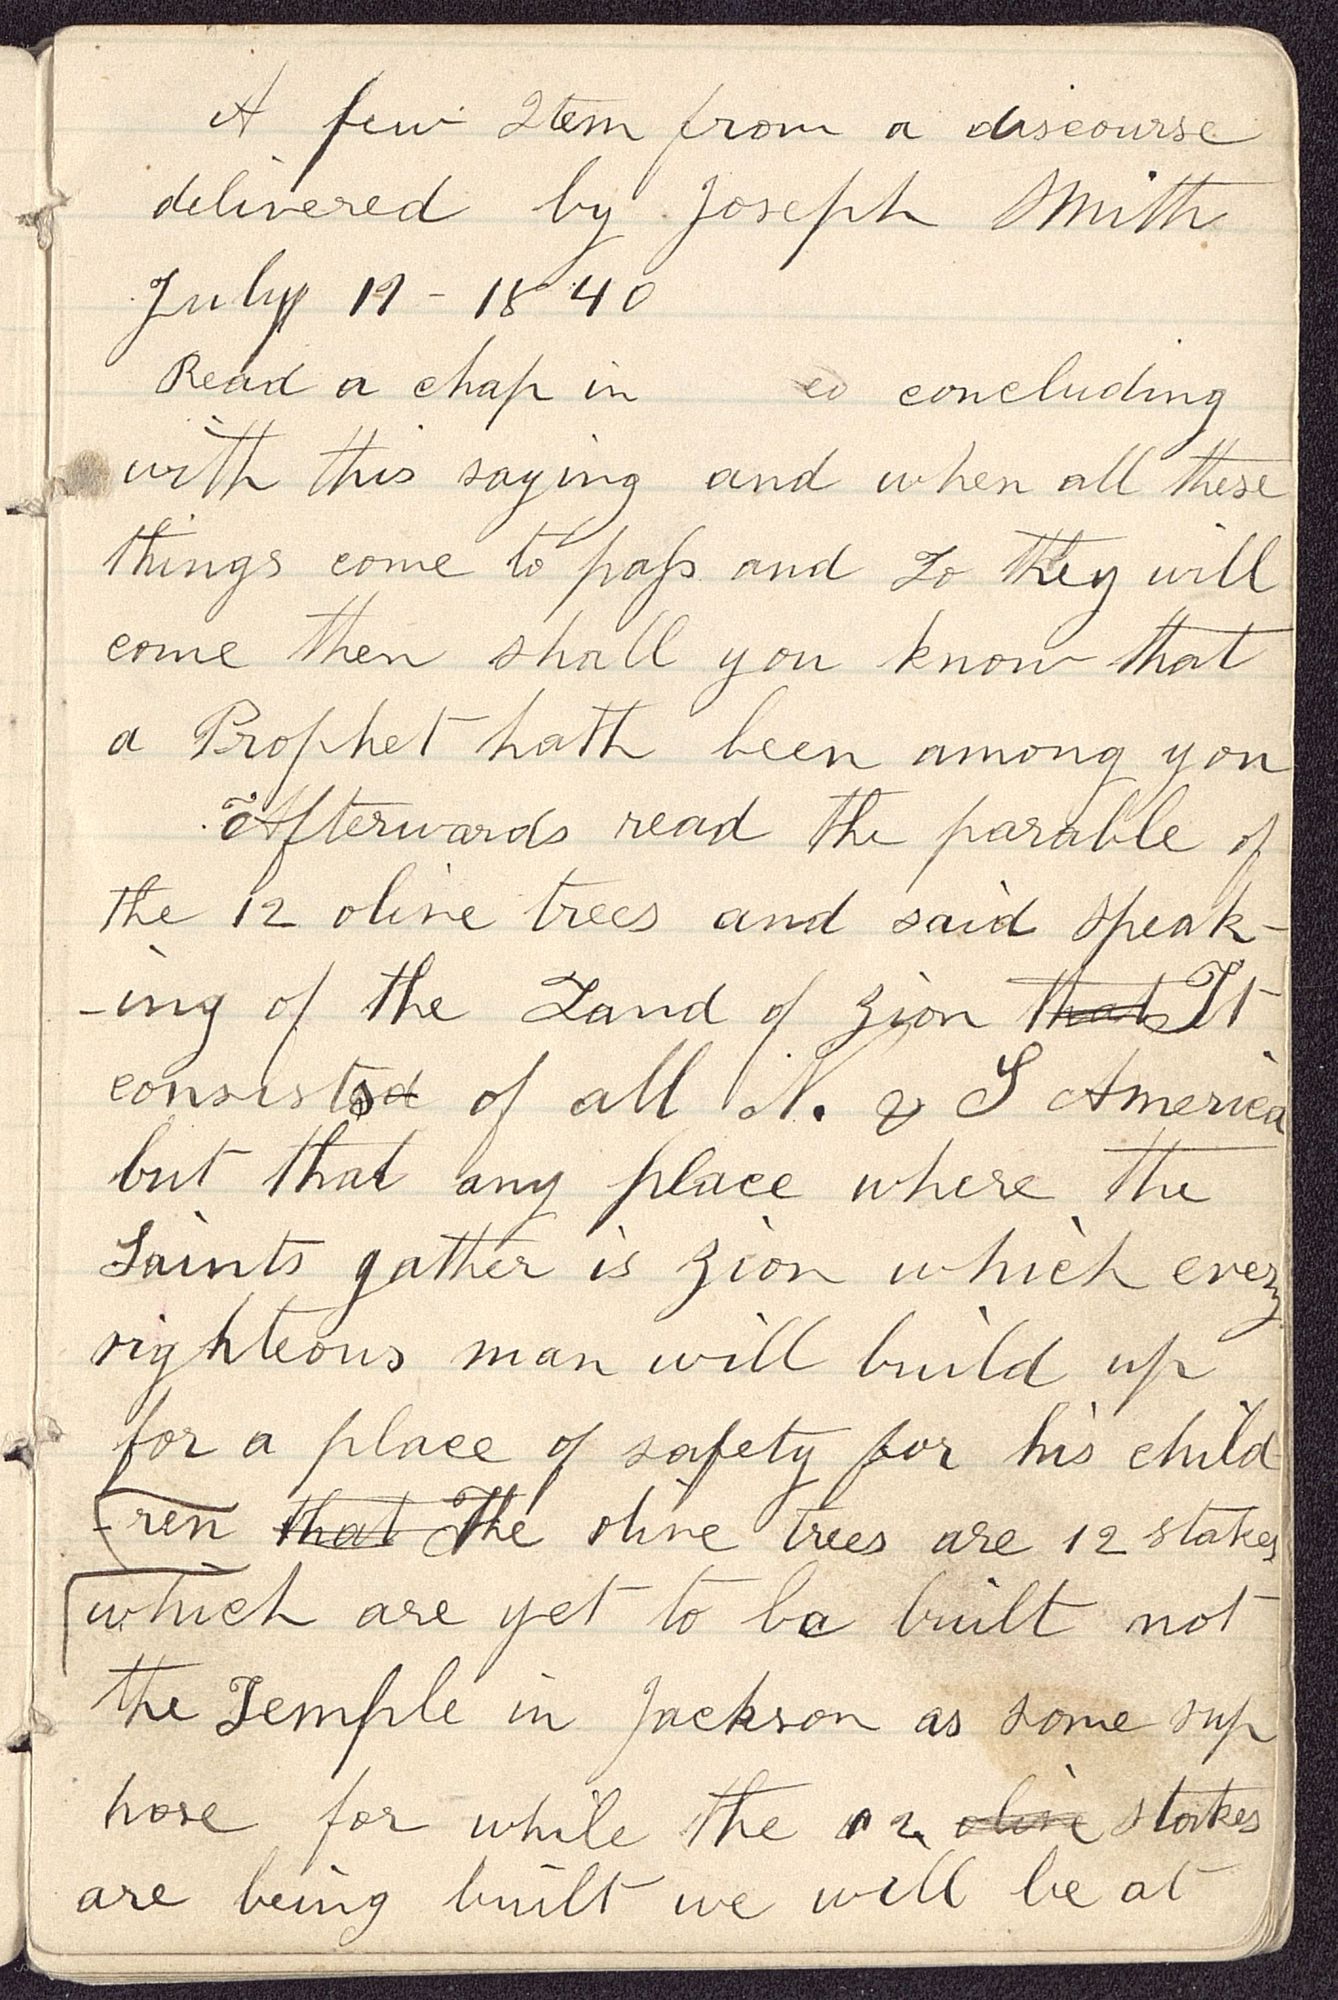 A few Item from a discourse
delivered by Joseph Smith
July 19 - 1840
Read a chap in concluding
with this saying and when all these
things come to paſs and Lo they will
come then shall you know that
a Prophet hath been among you
Afterwards read the parable of
the 12 olive trees and said speak-
-ing of the Land of Zion that It
consists of all N. & S America
but that any place where the
Saints gather is Zion which every
righteous man will build up
for a place of safety for his child
-ren that The olive trees are 12 stakes
which are yet to be built not
the Temple in Jackson as some sup
pose for while the 12 olive stakes
are being built we will be at